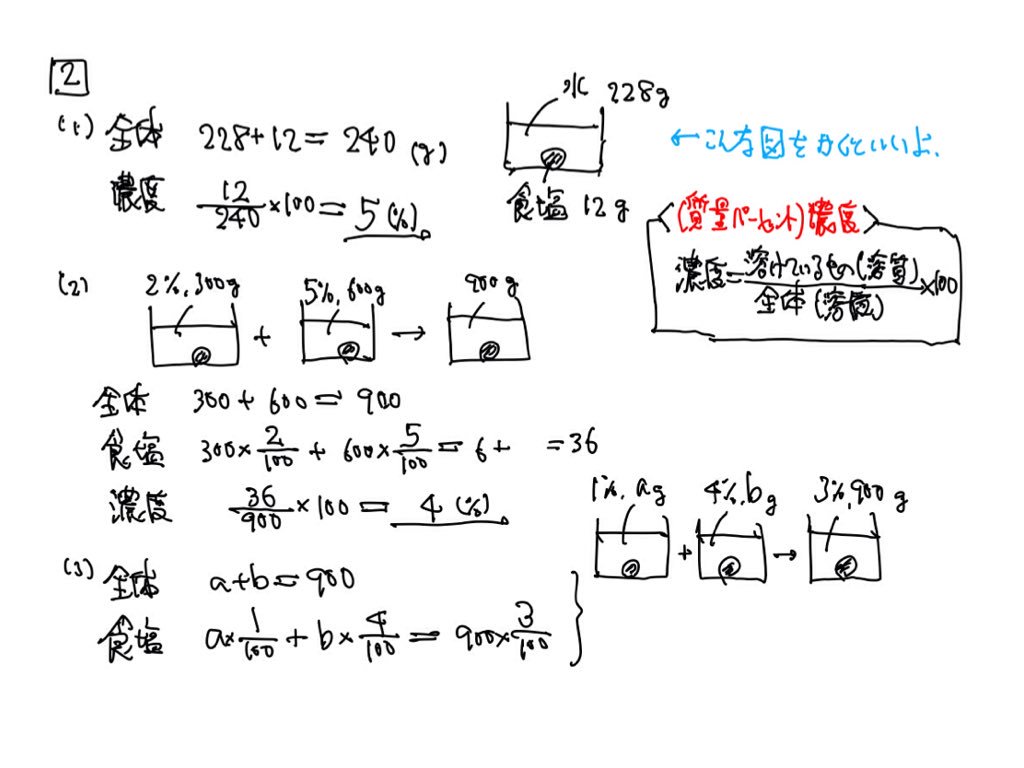 2
(1) 全体 228+12=240 (g)
水 228g
食塩 12g
←こんな図をかくといいよ.
濃度 12/240×100=5(%)
(質量パーセント)濃度
濃度=溶けているもの(溶質)/全体(溶液)×100
(2) 2%,300g + 5%,600g → 900g
全体 300+600=900
食塩 300×2/100+600×5/100=6+ =36
濃度 36/900×100=4(%)
1%,ag + 4%,bg → 3%,900g
(3) 全体 a+b=900
食塩 a×1/100+b×4/100=900×3/100